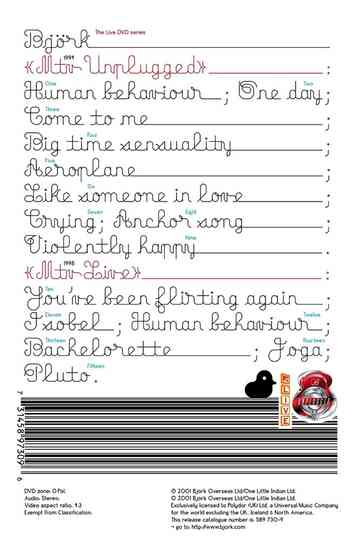 Björk The Live DVD series
1994
«Mtv Unplugged» ;
One Two
Human behaviour ; One day;
Three
Come to me ;
Four
Big time sensuality ;
Five
Aeroplane ;
Six
Like someone in love ;
Seven Eight
Crying; Anchor song ;
Nine
Violently happy ;
1998
«Mtv Live» ;
Ten
You've been flirting again ;
Eleven Twelve
Isobel ; Human behaviour ;
Thirteen Fourteen
Bachelorette ; Joga;
Fifteen
Pluto.
LIVE
7 31458 97309 6
DVD zone: 0 Pal.
Audio: Stereo.
Video aspect ratio: 4:3
Exempt from Classification.
© 2001 Björk Overseas Ltd/One Little Indian Ltd.
℗ 2001 Björk Overseas Ltd/One Little Indian Ltd.
Exclusively licensed to Polydor (UK) Ltd. a Universal Music Company
for the world excluding the UK, Iceland & North America.
This release catalogue number is: 589 730-9
→ go to: http://www.bjork.com